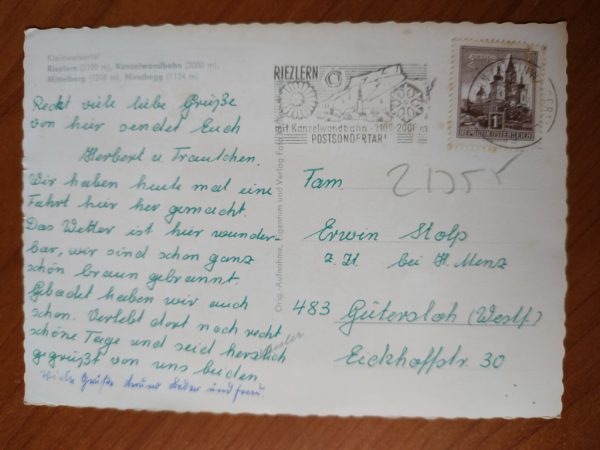 Kleinwalsertal
Riezlern (1100 m), Kanzelwandbahn (2000 m),
Mittelberg (1218 m), Hirschegg (1124 m)
Recht viele liebe Grüße
von hier sendet Euch
Herbert u. Trautchen.
Wir haben heute mal eine
Fahrt hier her gemacht.
Das Wetter ist hier wunder-
bar, wir sind schon ganz
schön braun gebrannt.
Gebadet haben wir auch
schon. Verlebt dort noch recht
schöne Tage und seid herzlich
gegrüßt von uns beiden
Viele Grüße und Frau.
Orig.-Aufnahme, Eigentum und Verlag
RIEZLERN
mit Kanzelwandbahn -1100-2000 m
POSTSONDERTARIF
1
REPUBLIK ÖSTERREICH
Fam.
Erwin Stolp
z. Zt. bei H. Menz
483 Gütersloh (Westf)
Eickhoffstr. 30